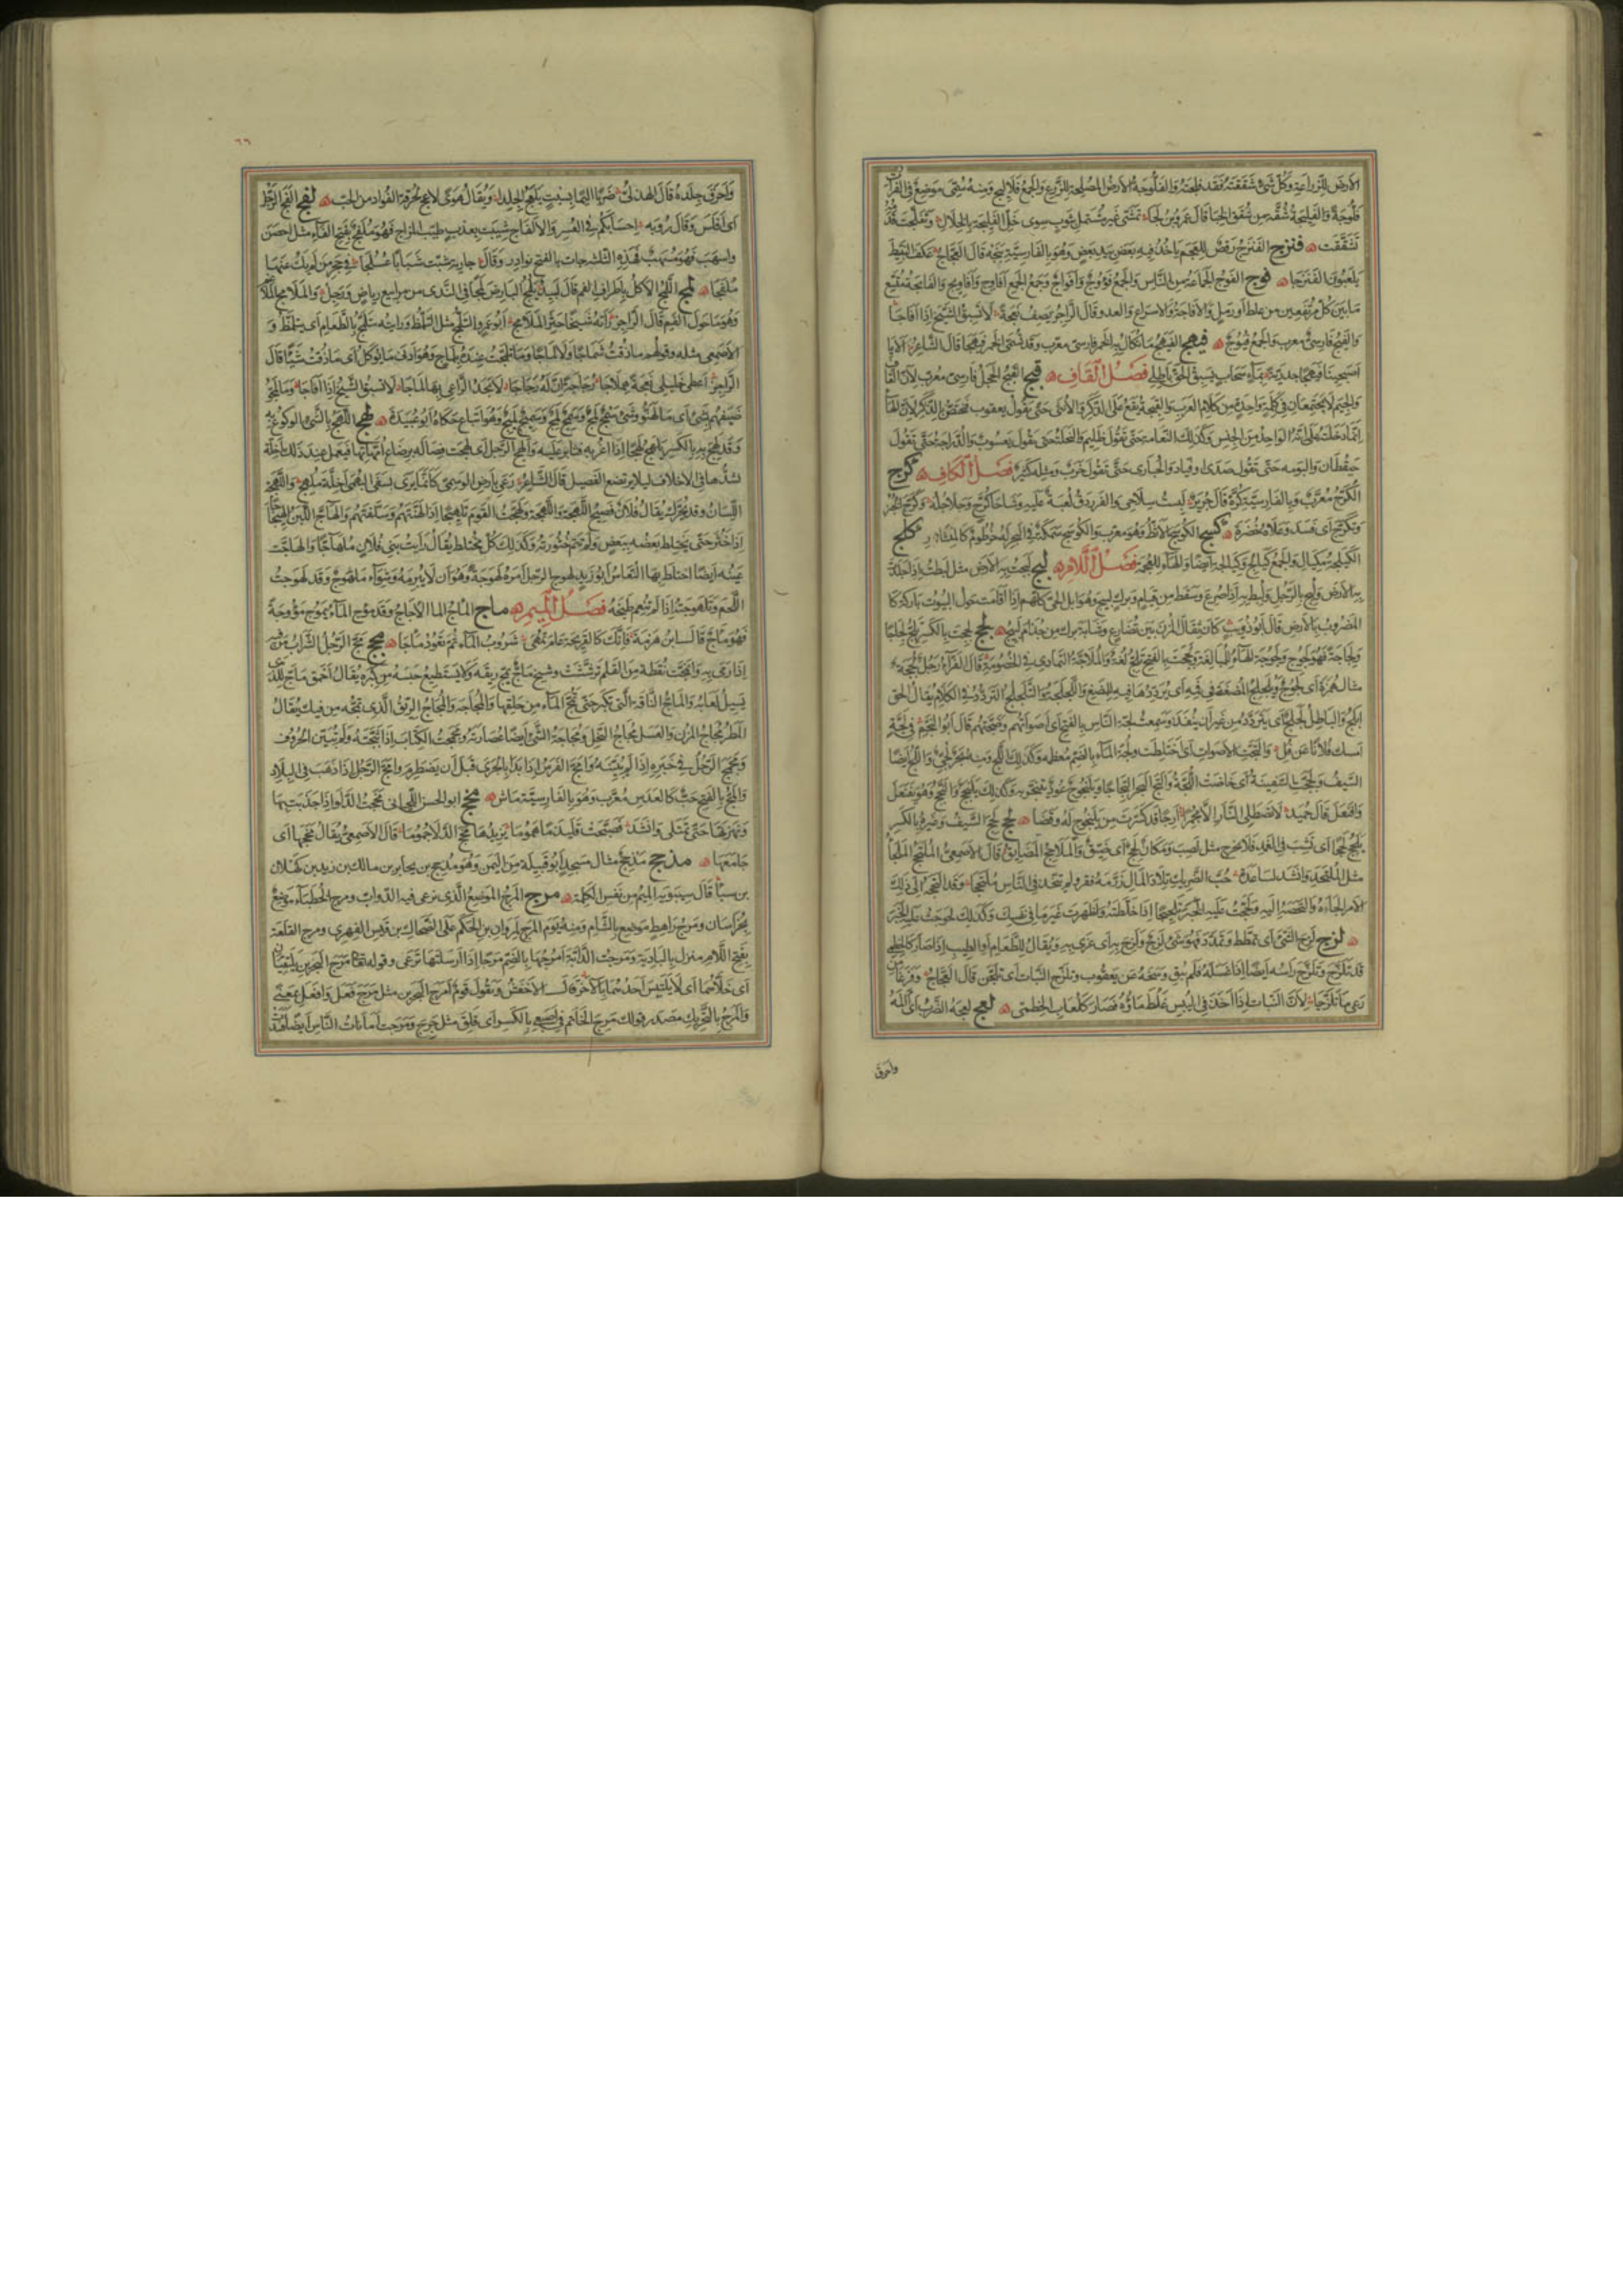 الأرض للزراعة وكل شئ شققته فقد فلجته والفلوجة الأرض المصلحة للزرع والجمع فلاليج ومنه سمى موضع فى الفرات
فلوجة والفليجة شقة من شقق الخباء قال عمرو بن لجا تمشى غير مشتمل بثوب سوى خل الفليجة بالخلال وتفلجت قدمه
تشققت فنزج الفنزج رقص للعجم يأخذ فيه بعض بيد بعض وهو بالفارسية بنجه قال العجاج عكف النبيط
يلعبون الفنزجا فوج الفوج الجماعة من الناس والجمع فؤوج وأفواج وجمع الجمع أفاوج وأفاويج والفائجة متسع
ما بين كل مرتفعين من غلظ أو رمل والافاجة الاسراع والعدو قال الراجز يصف نعجة لا تسبق الشيخ إذا أفاجا
والفيج فارسى معرب والجمع فيوج فيهج الفيهج ما تكال به الخمر فارسى معرب وقد تسمى الخمر فيهجا قال الشاعر ألا يا
اصبحينا فيهجا جدرية بماء سحاب يسبق الحق باطلى فصل القاف قبج القبج الحجل فارسى معرب لأن القاف
والجيم لا يجتمعان فى كلمة واحدة من كلام العرب والقبجة تقع على الذكر والأنثى حتى تقول يعقوب فيختص بالذكر لأن الهاء
إنما دخلته على أنه الواحد من الجنس وكذلك النعامة حتى تقول ظليم والنحلة حتى يقول يعسوب والدراجة حتى تقول
حيقطان والبومة حتى تقول صدى أو فياد والحبارى حتى تقول خرب ومثله كثير فصل الكاف كرج
الكرج معرب وبالفارسية كرة قال جرير لبست سلاحى والفرزدق لعبة عليه وشاحا كرج وجلاجله وكرج الخبز
وتكرج أى فسد وعلاه خضرة كسج الكوسج الأثط وهو معرب والكوسج سمكة فى البحر لها خرطوم كالمنشار كلج
الكيلجة مكيال والجمع كيالج وكيالجة أيضا والهاء للعجمة فصل اللام لبج لبجت به الأرض مثل لبطت إذا جلدت
به الأرض ولبج بالرجل ولبط به إذا صرع وسقط من قيام وبرك لبيج وهو ابل الحى كلهم إذا أقامت حول البيوت باركة كا
المضروب بالأرض قال أبو ذؤيب كأن ثقال المزن بين تضارع وشابة برك من جذام لبيج لجج لججت بالكسر تلج لجاجا
ولجاجة فهو لجوج ولجوجة الهاء للمبالغة ولججت بالفتح تلج لغة والملاجة التمادى فى الخصومة قال الفراء رجل لججة
مثال همزة أى لجوج ولجلج المضغة فى فيه أى يرددها فيه للمضغ واللجلجة والتلجلج التردد فى الكلام يقال الحق
أبلج والباطل لجلج أى يتردد من غير أن ينفذ وسمعت لجة الناس بالفتح أى أصواتهم وضجتهم قال أبو النجم فى لجة
أمسك فلانا عن فل والتجت الأصوات أى اختلطت ولجة الماء بالضم معظمه وكذلك اللج ومنه بحر لجى واللج أيضا
السيف ولججت السفينة أى خاضت اللجة والتج البحر التجاجا ويلنجوج عود يتبخر به وكذلك يلنجج وألنجج وهو يفنعل
وافنعل قال حميد لا تصطلى النار إلا مجمرا أرجا قد كسرت من يلنجوج له وقصا لحج لحج السيف وغيره بالكسر
يلحج لحجا أى نشب فى الغمد فلا يخرج مثل لصب ومكان لحج أى ضيق والملاحج المضايق قال الأصمعى الملتحج الملجأ
مثل الملتحد وأنشد لساعدة حب الضريك تلاد المال زرمه فقر ولم يتخذ فى الناس ملتحجا وقد التحجه إلى ذلك
الأمر الجاه والتحصه إليه ولحجت عليه الخبر تلحيجا إذا خلطته وأظهرت غير ما فى نفسك وكذلك لحوجت عليه الخبر
لزج لزج الشئ أى تمطط وتمدد فهو شئ لزج ولزج به أى غرى به ويقال للطعام أو الطيب إذا صار كالخطمى
قد تلزج وتلزج رأسه أيضا إذا غسله فلم ينق وسخه عن يعقوب وتلزج النبات أى تلجن قال العجاج وفرغا من
رعى ما تلزجا لأن النبات إذا أخذ فى اليبس غلظ ماؤه فصار كلعاب الخطمى لعج لعجه الضرب أى آلمه
وأحرق
٦٦
وأحرق جلده قال الهذلى ضربا أليما بسبت يلعج الجلدا ويقال هوى لاعج لحرقة الفؤاد من الحب لفج ألفج الرجل
أى أفلس وقال رؤبه أحسابكم فى العسر والالفاج شيبت بعذب طيب المزاج فهو ملفج بفتح الفاء مثل أحصن
وأسهب فهو مسهب فهذه الثلثة جاءت بالفتح نوادر وقال جارية شبت شبابا عسلجا فى حجر من لم يك عنها
ملفجا لمج اللمج الأكل بأطراف الفم قال لبيد يلمج البارض لمجا فى الندى من مرابيع رياض ورجل والملامج الملاغم
وهو ما حول الفم قال الراجز رأته شيخا حثر الملامج أبو عمرو التلمج مثل التلمظ ورأيته يتلمج بالطعام أى يتلمظ و
الأصمعى مثله وقولهم ما ذقت شماجا ولا لماجا وما تلمجت عنده بلماج وهو أدنى ما يؤكل أى ما ذقت شيئا قال
الراجز أعطى خليلى نعجة هملاجا رجاجة إن له رجاجا لا يجد الراعى بها لماجا لا تسبق الشيخ إذا أفاجا وما لمجوا
ضيفهم بشئ أى ما لهنوه وشئ سمج لمج وسمج لمج وسميج لميج وهو اتباع حكاه أبو عبيدة لهج اللهج بالشئ الولوع به
وقد لهج به بالكسر يلهج لهجا إذا أغرى به فثابر عليه وألهج الرجل أى لهجت فصاله برضاع أمهاتها فيعمل عند ذلك أخلة
يشدها فى الأخلاف لئلا يرتضع الفصيل قال الشاعر رعى بارض الوسمى حتى كأنما يرى بسفى البهمى أخلة ملهج واللهجة
اللسان وقد يحرك يقال فلان فصيح اللهجة واللهجة ولهجت القوم تلهيجا إذا لهنتهم وسلفتهم والهاج اللبن الهيجاجا
إذا خثر حتى يختلط بعضه ببعض ولم تتم خثورته وكذلك كل مختلط يقال رأيت بنى فلان ملهاجا والهاجت
عينه أيضا اختلط بها النعاس أبو زيد لهوج الرجل أمره لهوجة وهو أن لا يبرمه وشواء ملهوج وقد لهوجت
اللحم وتلهوجته إذا لم تنعم طبخه فصل الميم ماج المأج الماء الأجاج وقد مؤج الماء يمؤج مؤوجة
فهو مأج قال ابن هرمة فإنك كالقريحة عام تمهى شروب الماء ثم تعود مأجا مجج مج الرجل الشراب من فيه
إذا رمى به وانمجت نقطة من القلم ترششت وشيخ ماج يمج ريقه ولا يستطيع حبسه من كبره يقال أحمق ماج للذى
يسيل لعابه والماج الناقة التى تكبر حتى تمج الماء من حلقها والمجاجة والمجاج الريق الذى تمجه من فيك يقال
المطر مجاج المزن والعسل مجاج النحل ومجاجة الشئ أيضا عصارته ومجمجت الكتاب إذا ثبجته ولم تبين الحروف
ومجمج الرجل فى خبره إذا لم يبينه وأمج الفرس إذا بدأ بالجرى قبل أن يضطرم وأمج الرجل إذا ذهب فى البلاد
والمج بالفتح حب كالعدس معرب وهو بالفارسية ماش مخج أبو الحسن اللحيانى مخجت الدلو إذا جذبت بها
ونهزتها حتى تمتلى وأنشد فصبحت قليذما هموما يزيدها مخج الدلا جموما قال الأصمعى يقال مخجها أى
جامعها مذحج مذحج مثال مسجد أبو قبيلة من اليمن وهو مذحج بن يحابر بن مالك بن زيد بن كهلان
بن سبأ قال سيبويه الميم من نفس الكلمة مرج المرج الموضع الذى ترعى فيه الدواب ومرج الخطباء موضع
بخراسان ومرج راهط موضع بالشام ومنه يوم المرج لمروان بن الحكم على الضحاك بن قيس الفهرى ومرج القلعة
بفتح اللام منزل بالبادية ومرجت الدابة أمرجها بالضم مرجا إذا أرسلتها ترعى وقوله تعالى مرج البحرين يلتقيان
أى خلاهما أى لا يلتبس أحدهما بالآخر قال الأخفش ويقول قوم أمرج البحرين مثل مرج فعل وأفعل بمعنى
والمرج بالتحريك مصدر قولك مرج الخاتم فى إصبعى بالكسر أى قلق مثل جرج ومرجت أمانات الناس أيضا فسدت